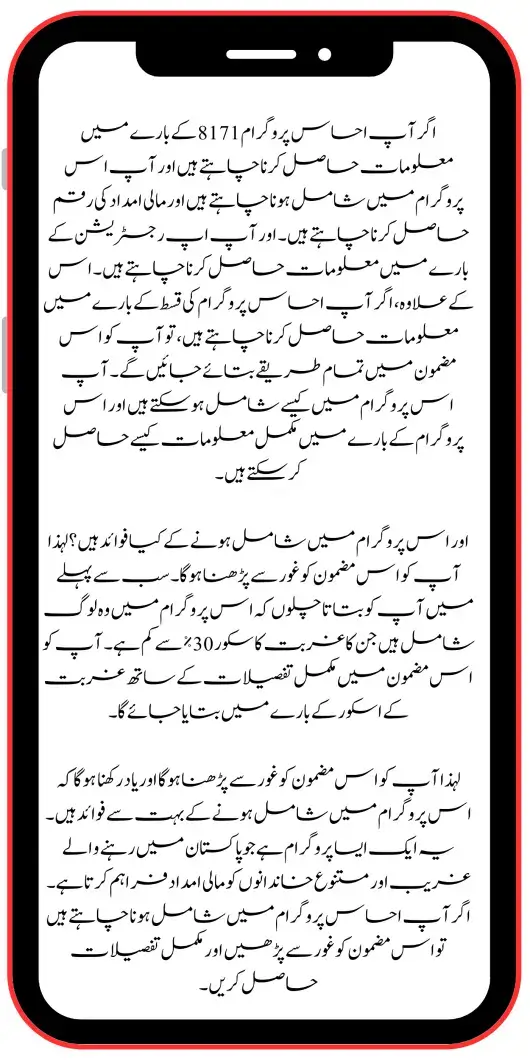 اگر آپ احساس پروگرام 8171 کے بارے میں
معلومات حاصل کرنا چاہتے ہیں اور آپ اس
پروگرام میں شامل ہونا چاہتے ہیں اور مالی امداد کی رقم
حاصل کرنا چاہتے ہیں۔ اور آپ اپ رجسٹریشن کے
بارے میں معلومات حاصل کرنا چاہتے ہیں۔ اس
کے علاوہ، اگر آپ احساس پروگرام کی قسط کے بارے میں
معلومات حاصل کرنا چاہتے ہیں، تو آپ کو اس
مضمون میں تمام طریقے بتائے جائیں گے۔ آپ
اس پروگرام میں کیسے شامل ہو سکتے ہیں اور اس
پروگرام کے بارے میں مکمل معلومات کیسے حاصل
کر سکتے ہیں۔
اور اس پروگرام میں شامل ہونے کے کیا فوائد ہیں؟ لہذا
آپ کو اس مضمون کو غور سے پڑھنا ہوگا۔ سب سے پہلے
میں آپ کو بتاتا چلوں کہ اس پروگرام میں وہ لوگ
شامل ہیں جن کا غربت کا سکور 30% سے کم ہے۔ آپ کو
اس مضمون میں مکمل تفصیلات کے ساتھ غربت
کے اسکور کے بارے میں بتایا جائے گا۔
لہذا آپ کو اس مضمون کو غور سے پڑھنا ہوگا اور یاد رکھنا ہوگا کہ
اس پروگرام میں شامل ہونے کے بہت سے فوائد ہیں۔
یہ ایک ایسا پروگرام ہے جو پاکستان میں رہنے والے
غریب اور متنوع خاندانوں کو مالی امداد فراہم کرتا ہے۔
اگر آپ احساس پروگرام میں شامل ہونا چاہتے ہیں
تو اس مضمون کو غور سے پڑھیں اور مکمل تفصیلات
حاصل کریں۔